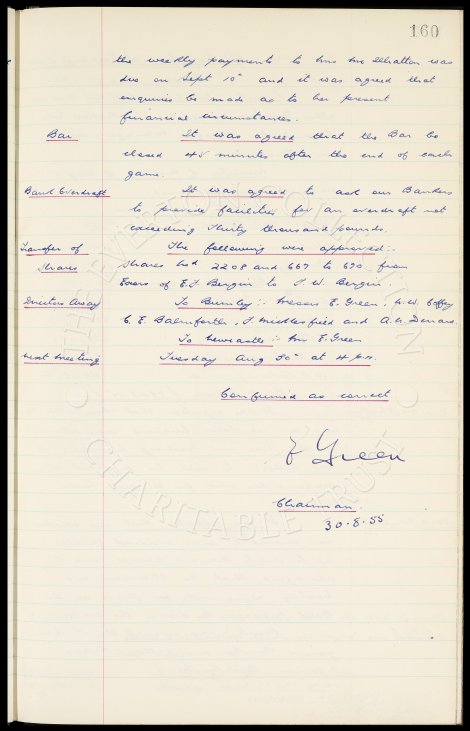 160
the weekly payments to Mrs McWhatton was
due on Sept 10th and it was agreed that
enquiries be made as to her present
financial circumstances.
Bar It was agreed that the Bar be
closed 45 minutes after the end of each
game.
Bank Overdraft It was agreed to ask our Bankers
to provide facilities for an overdraft not
exceeding Thirty thousand pounds.
Transfer of The following were approved:-
Shares Shares Nos 2208 and 667 to 670 from
Exors of E.J. Bergin to J.W. Bergin.
Directors Away To Burnley:- Messrs E. Green, N.W. Coffey
C.E. Balmforth, J. Micklesfield and A.H. Denaro.
To Newcastle:- Mr E. Green
Next Meeting Tuesday Aug 30th at 4 p.m.
Confirmed as correct
E Green
Chairman.
30.8.55
THE EVERTON COLLECTION
CHARITABLE TRUST